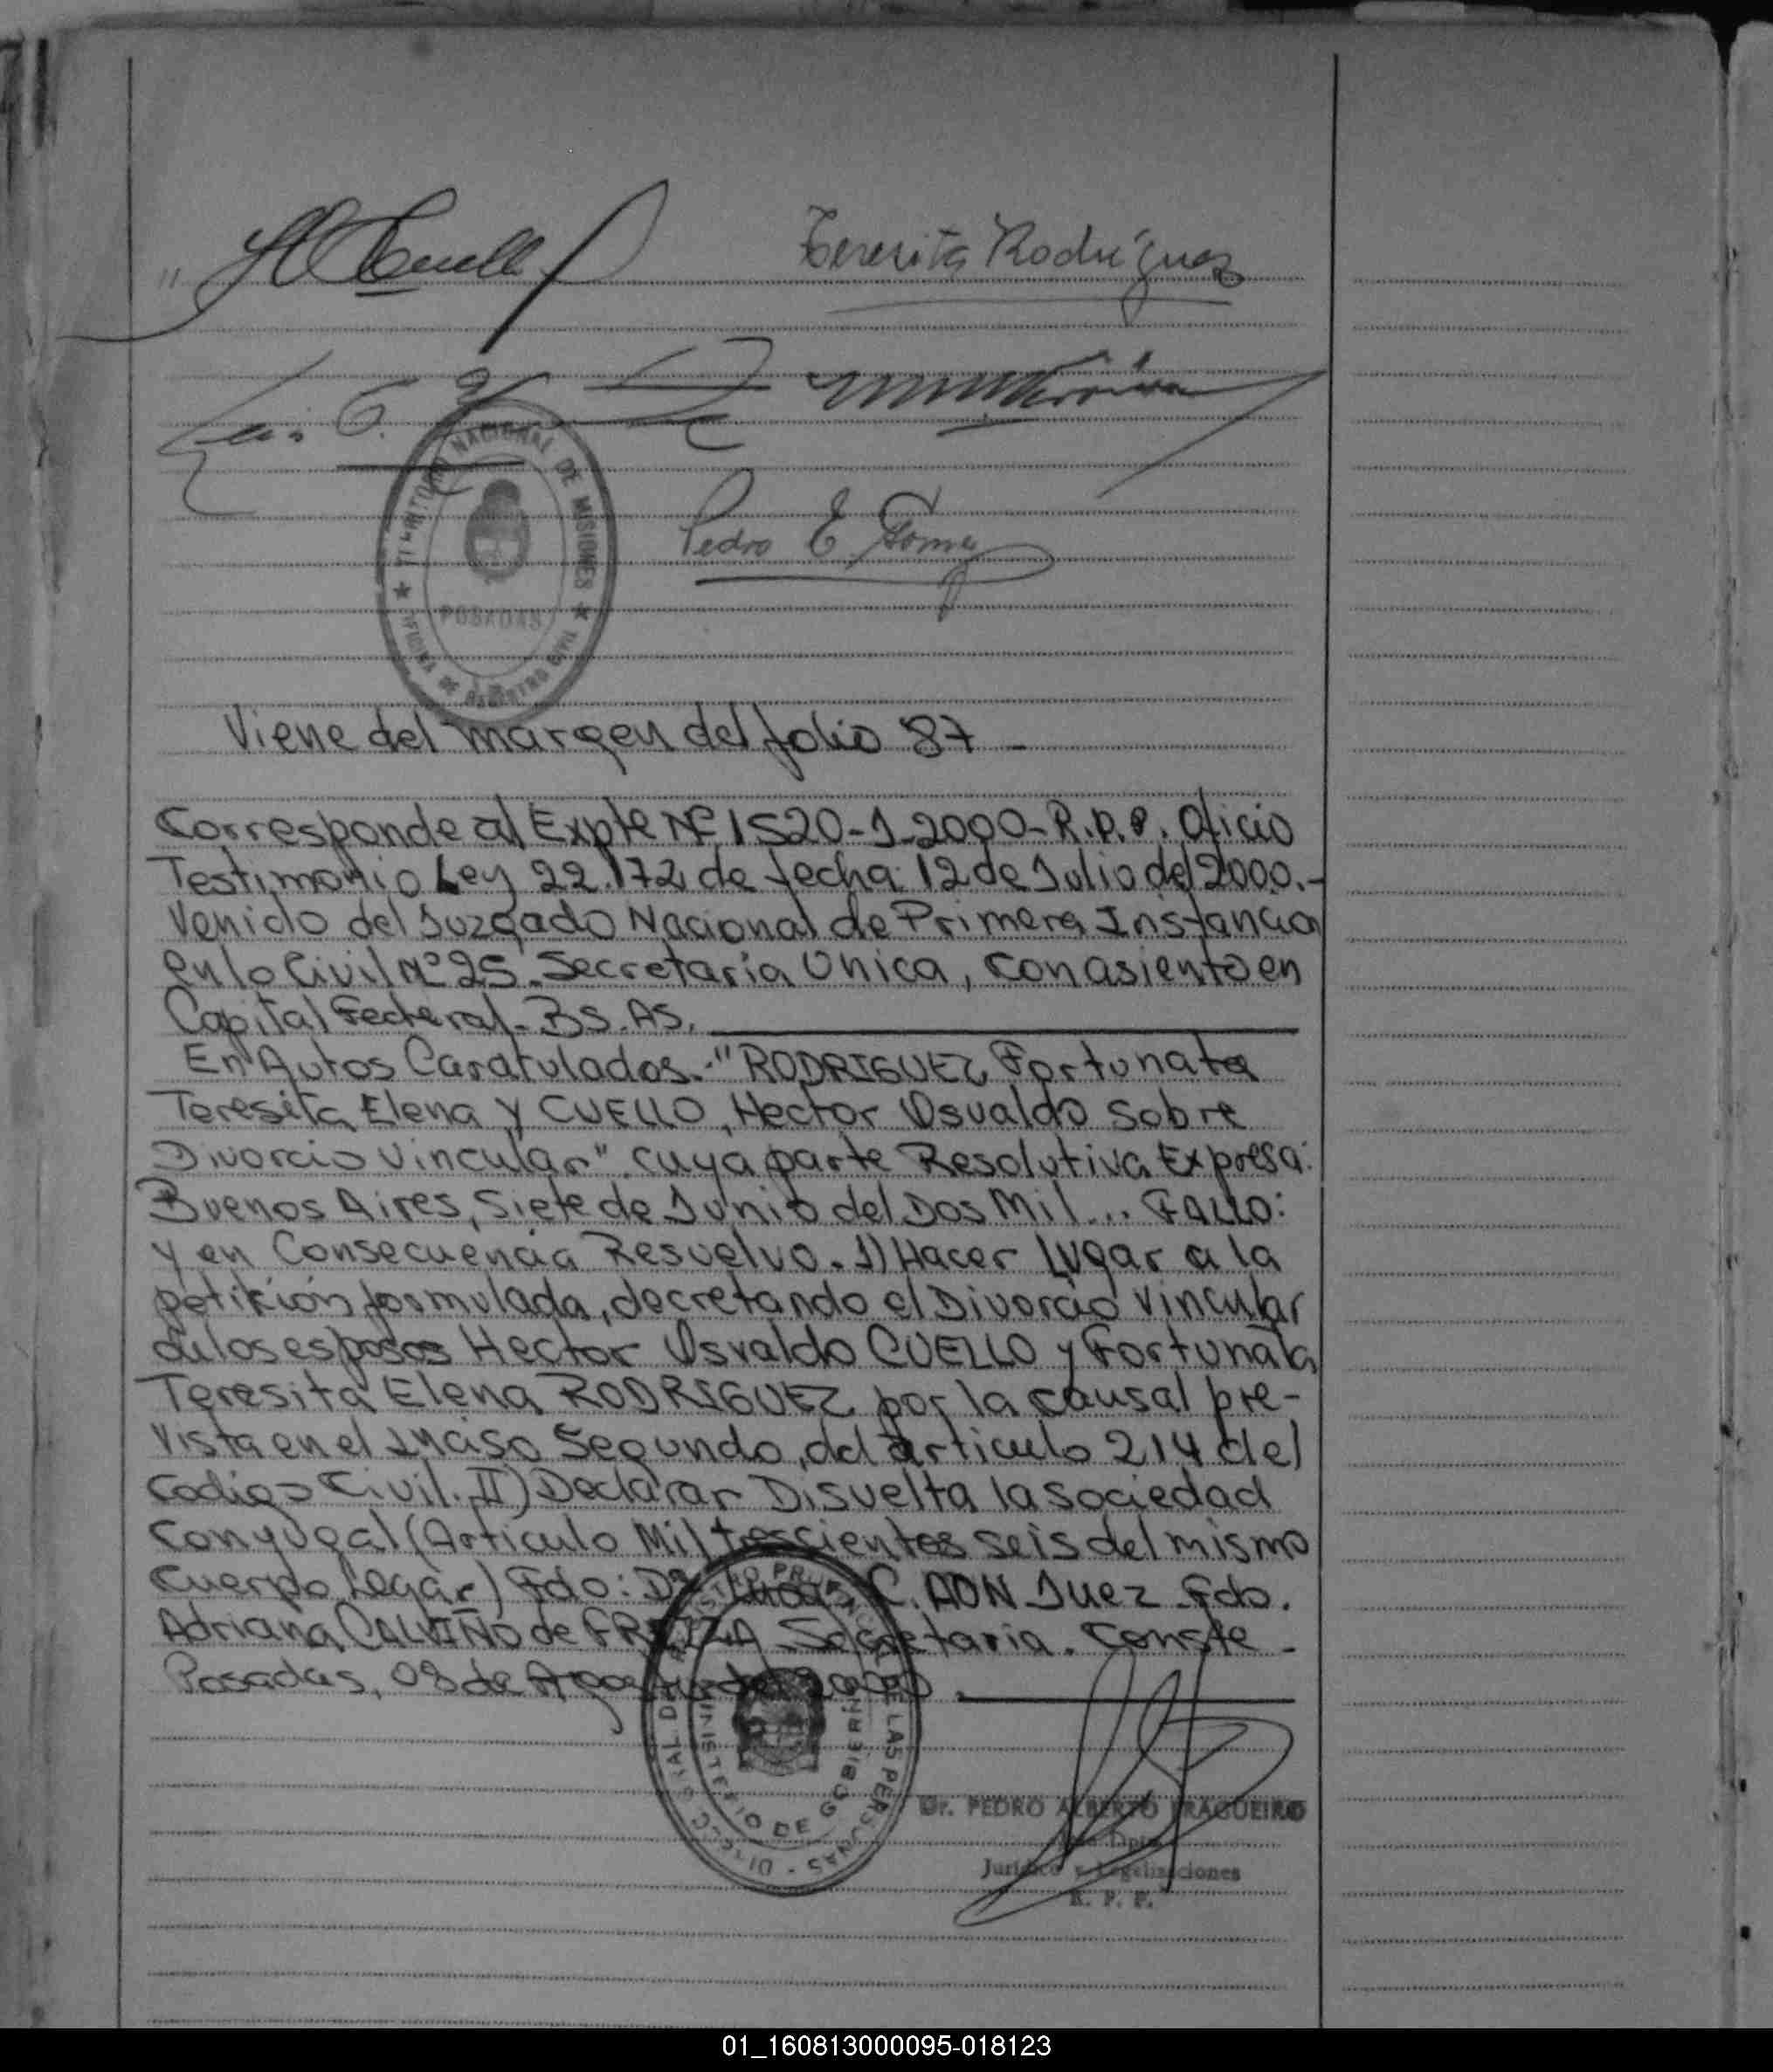 " H O Cuello
Teresita Rodríguez
Pedro E Gomez
TERRITORIO NACIONAL DE MISIONES
POSADAS
OFICINA DE REGISTRO CIVIL
Viene del margen del folio 87 -
Corresponde al Expte Nº 1520-1-2000-R.P.P. Oficio
Testimonio Ley 22.172 de fecha 12 de Julio del 2000.-
Venido del Juzgado Nacional de Primera Instancia
en lo Civil Nº 25. Secretaria Unica, con asiento en
Capital Federal - BS. AS.
En Autos Caratulados.- "RODRIGUEZ, Fortunata
Teresita Elena y CUELLO, Hector Osvaldo Sobre
Divorcio Vincular". cuya parte Resolutiva Expresa:
Buenos Aires, Siete de Junio del Dos Mil... FALLO:
y en Consecuencia Resuelvo. 1) Hacer Lugar a la
petición formulada, decretando el Divorcio Vincular
de los esposos Hector Osvaldo CUELLO y Fortunata
Teresita Elena RODRIGUEZ por la causal pre-
vista en el inciso Segundo, del articulo 214 del
Codigo Civil. II) Declarar Disuelta la sociedad
Conyugal (Artículo Mil trescientos seis del mismo
Cuerpo Legar) Fdo: C. AON Juez. Fdo.
Adriana CALVIÑO de Secretaria. Conste -
Posadas, 08 de Agosto del 2000.
MINISTERIO DE GOBIERNO
Dr. PEDRO ALBERTO FRAGUEIRO
Dpto.
Jurídico y Legalizaciones
R. P. P.
01_160813000095-018123